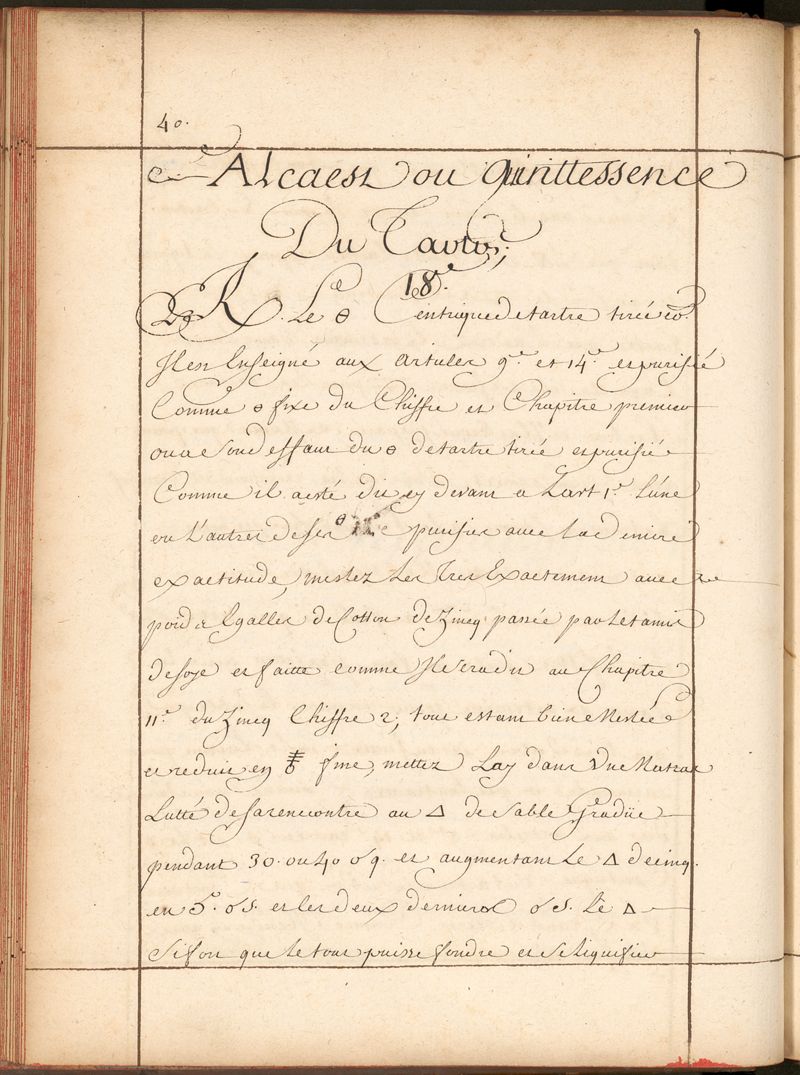 40.
Alcaest ou Quinttessence
Du Tartre;
18.e
R. Le 🜔 Centrique de tartre tirée co.e
Il est Enseigné aux articles 9.e et 14.e et purifié
Comme 🜔 fixe du Chiffre et Chapitre premier
ou a son deffaut du 🜔 de tartre tirée et purifié
Comme il a esté dit cy devant a L'art 1.r L'une
ou L'autres de ses 🜔 purifier avec La derniere
exactitude, meslez Les Tres Exactement avec
poid Egalles de Cotton de Zincq passée par Le tamis
de soye et faitte comme Il sera dit au Chapitre
11.e du Zincq Chiffre 2, tout estant bien Meslée
et reduit en fine, mettez Lay dans Une Matras
Lutté de sa rencontre au 🜂 de sable Gradüe
pendant 30. ou 40 et augmentant Le 🜂 de cinq.
en 5. et les deux derniers Le 🜂
si fort que Le tout puisse fondre et se Liquifier